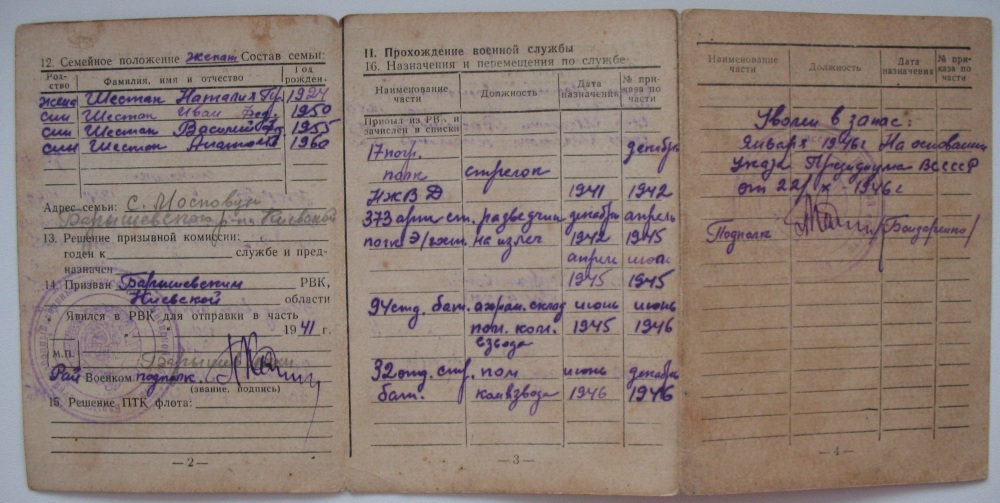 12. Семейное положение женат Состав семьи:
Родство Фамилия, имя и отчество Год рожден.
жена Шестак Наталия Гр. 1924
сын Шестак Иван Фед. 1950
сын Шестак Василий 1955
сын Шестак Анатол 1960
Адрес семьи: С.
Барышевского р-на Киевской
13. Решение призывной комиссии:
годен к службе и пред-
назначен
14. Призван Барышевским РВК,
Киевской области
Явился в РВК для отправки в часть
1941 г.
М.П.
Рай Военком подполк.
(звание, подпись)
15. Решение ПТК флота:
— 2 —
11. Прохождение военной службы
16. Назначения и перемещения по службе
Наименование части Должность Дата назначения № приказа по части
Прибыл из РВК и
зачислен в списки
17 погр. декабрь
полк стрелок
НКВД 1941 1942
373 арт разведчик декабрь апрель
полк 1942 1945
апрель июнь
1945 1945
94 отд. бат. охран. склад июнь июнь
пом. ком. 1945 1946
взвода
32 отд. стр. пом июнь декабрь
бат. комвзвода 1946 1946
Наименование части Должность Дата назначения № приказа по части
Уволен в запас:
Января 1946г На основании
Указа Президиума ВСССССР
от 22/X-1946г
Подполк /Бондаренко/
— 4 —
— 3 —